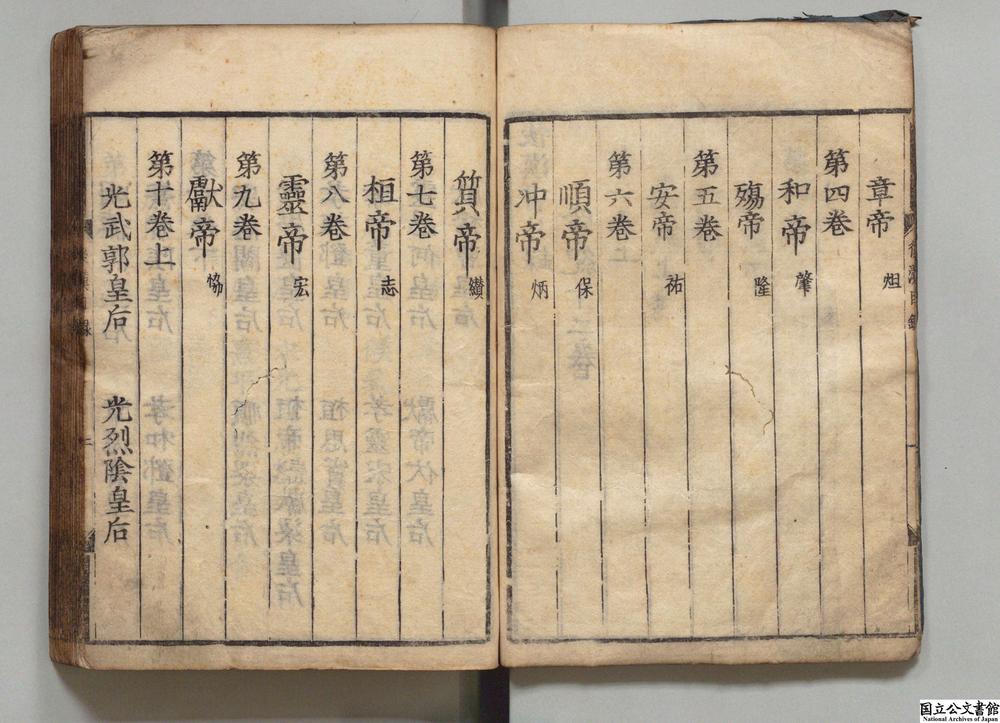 章帝 炟
第四卷
和帝 肇
殤帝 隆
第五卷
安帝 祐
第六卷
順帝 保
冲帝 炳
質帝 纘
第七卷
桓帝 志
第八卷
靈帝 宏
第九卷
獻帝 恊
第十卷上
光武郭皇后 光烈陰皇后
国立公文書館
National Archives of Japan